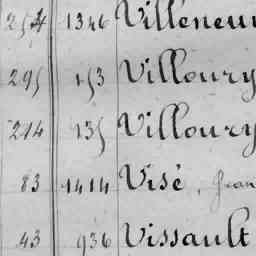 254 1346 Villeneu
295 153 Villoury
214 135 Villoury
83 1414 Visé, Jean
43 936 Vissault